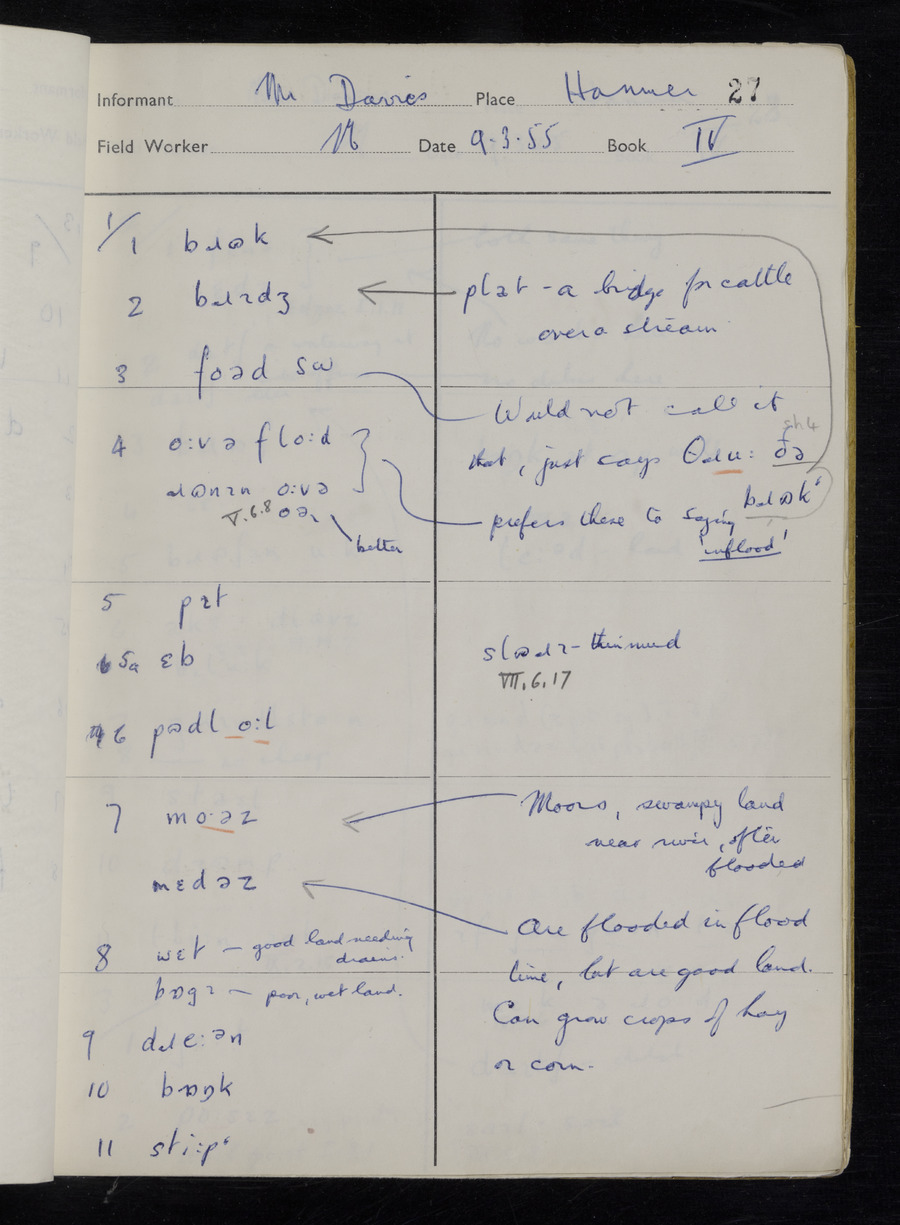 Informant Mr Davies Place Hanmer 27
Field Worker Date 9.3.55 Book IV
1/1 bɹɷk
2 bɹɪdʒ
plat - a bridge for cattle
over a stream
3 foəd
Would not call it
sh4
that, just says θɹu: ðə
bɹɷk
4 o:və flo:d
ɹɷnɪn o:və
V.6.8 oə
better
prefers these to saying
'inflood'
5 pɪt
5a ɛb
VII.6.17
6 pɷdl o:l
7 mo:əz
Moors, swampy land
near river, often
flooded
mɛdəz
Are flooded in flood
time, but are good land.
Can grow crops of hay
or corn.
8 wɛt – good land needing
drains.
bɒgɪ – poor, wet land.
9 dɹe:ən
10 bɒŋk
11 sti:pʻ